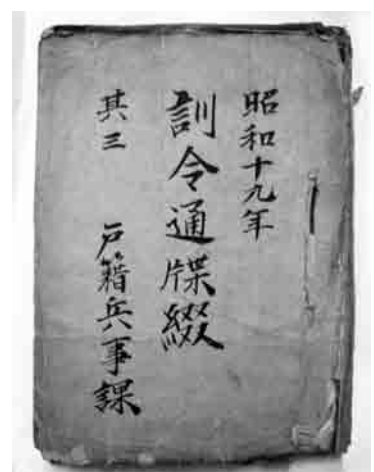 昭和十九年
訓令通牒綴
其三　戸籍兵事課